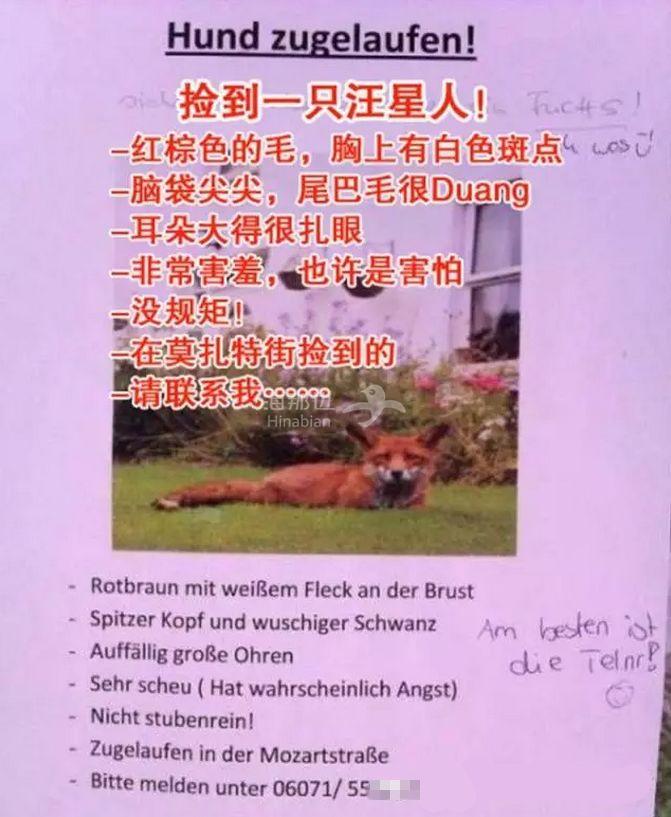 Hund zugelaufen!
捡到一只汪星人!
Fuchs!
was
-红棕色的毛，胸上有白色斑点
-脑袋尖尖，尾巴毛很Duang
-耳朵大得很扎眼
-非常害羞，也许是害怕
-没规矩!
-在莫扎特街捡到的
-请联系我……
海那边
Hinabian
- Rotbraun mit weißem Fleck an der Brust
- Spitzer Kopf und wuschiger Schwanz
- Auffällig große Ohren
- Sehr scheu ( Hat wahrscheinlich Angst)
- Nicht stubenrein!
- Zugelaufen in der Mozartstraße
- Bitte melden unter 06071/ 55
Am besten ist
die Telnr!